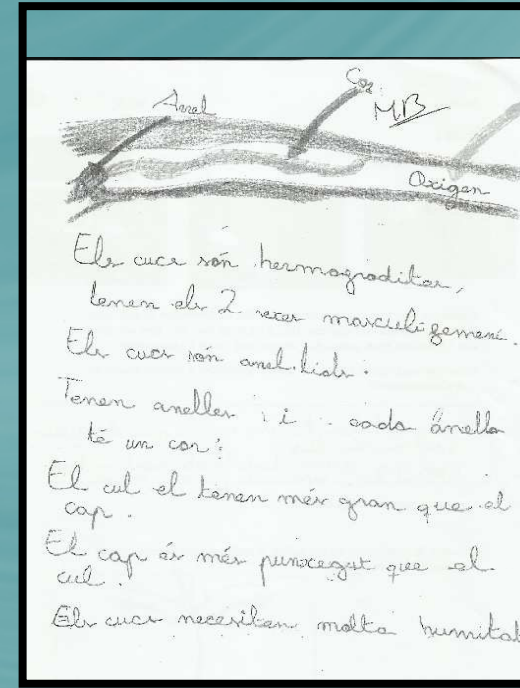 Anel
CO2
MB
Oxigen
Els cucs són hermogroditas,
tenen els 2 sexes masculi gemení.
Els cucs són anel·lids.
Tenen anelles i cada anella
té un cor:
El cul el tenen més gran que el
cap.
El cap és més punxegut que el
cul.
Els cucs necesiten molta humitat